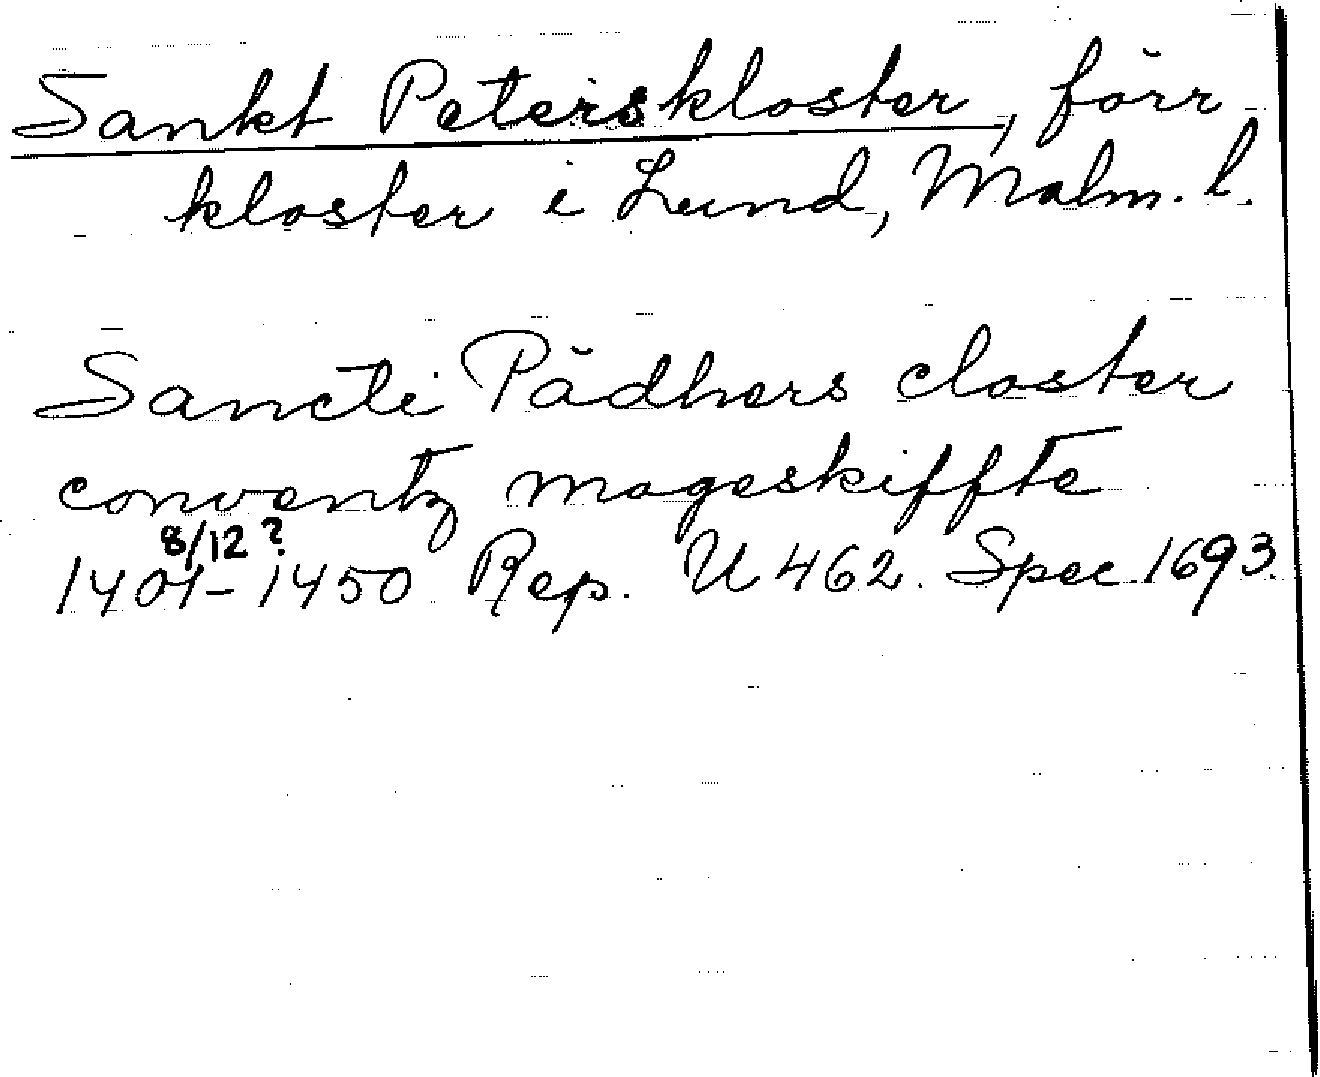 Sankt Peterskloster, förr
kloster i Lund, Malm. l.
Sancti Pädhers closter
conventz mageskiffte
8/12?
1401-1450 Rep. U 462. Spec 1693.